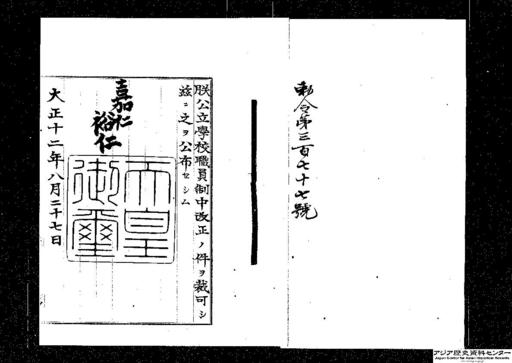 勅令第三百七十七號
朕公立學校職員制中改正ノ件ヲ裁可シ
玆ニ之ヲ公布セシム
嘉仁
裕仁
天皇
御璽
大正十二年八月二十七日
アジア歴史資料センター
Japan Center for Asian Historical Records